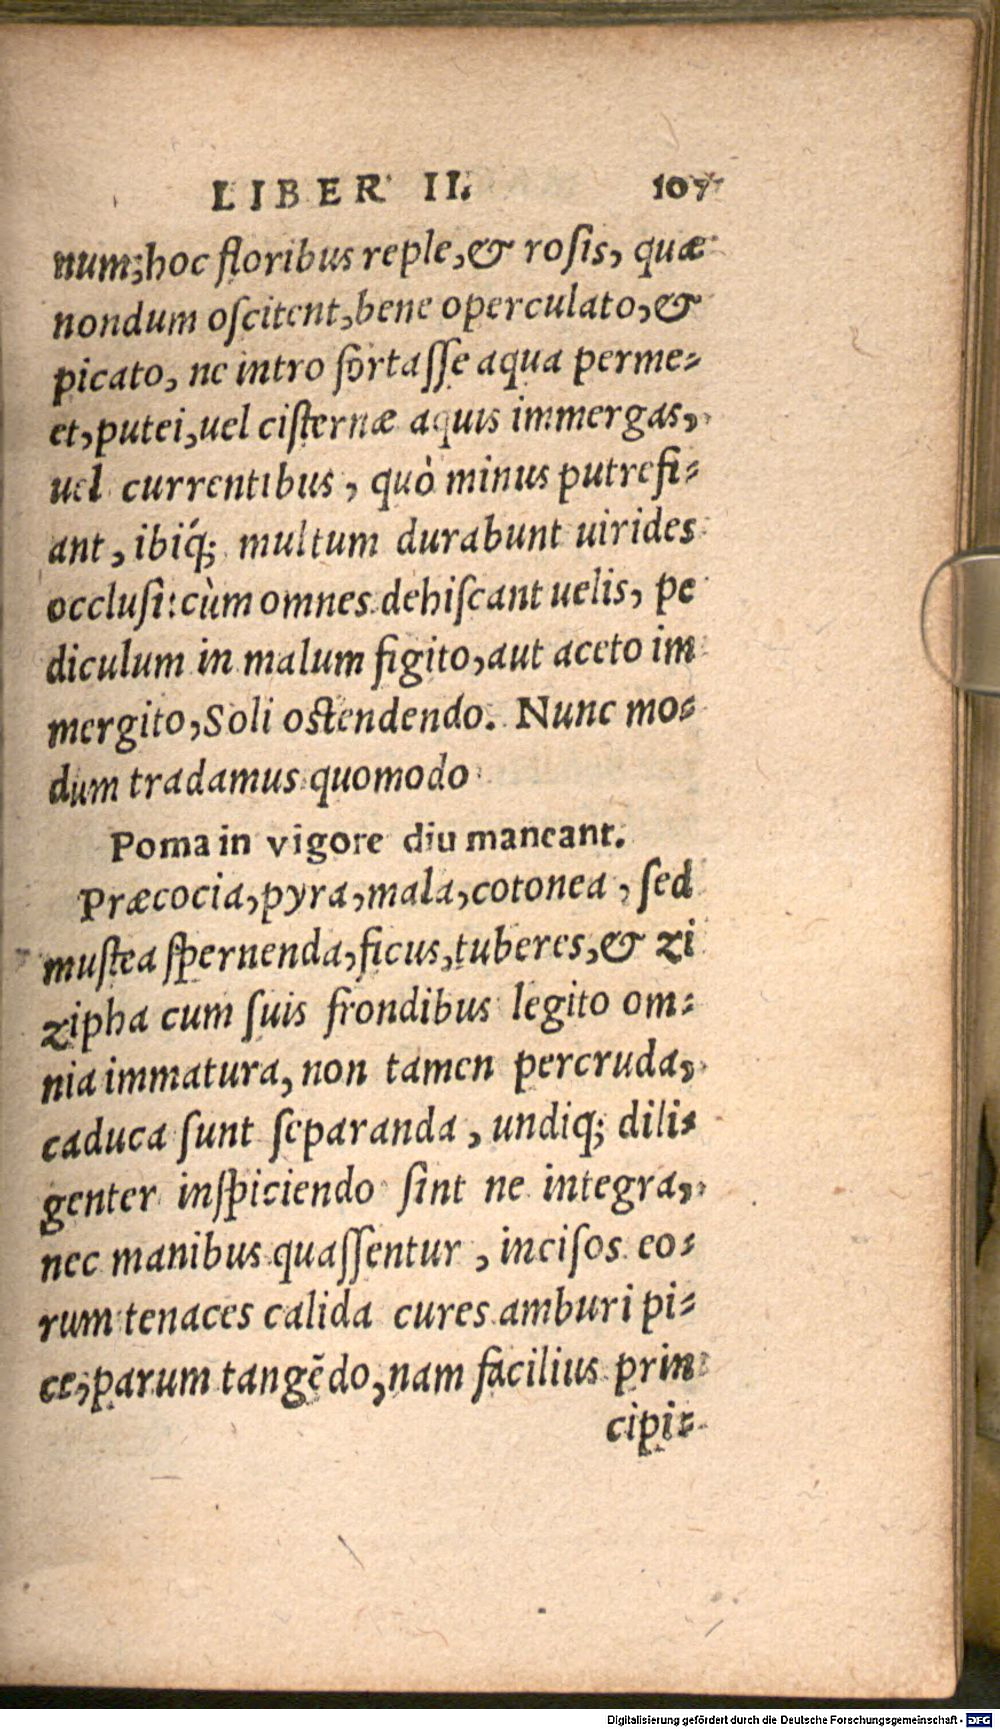 LIBER II. 107
num; hoc floribus reple, & rosis, quæ
nondum oscitent, bene operculato, &
picato, ne intro fortasse aqua perme-
et, putei, uel cisternæ aquis immergas,
uel currentibus, quò minus putrefi-
ant, ibiq́; multum durabunt uirides
occlusi: cùm omnes dehiscant uelis, pe
diculum in malum figito, aut aceto im
mergito, Soli ostendendo. Nunc mo-
dum tradamus quomodo
Poma in vigore diu maneant.
Præcocia, pyra, mala, cotonea, sed
mustea spernenda, ficus, tuberes, & zi
zipha cum suis frondibus legito om-
nia immatura, non tamen percruda,
caduca sunt separanda, undiq; dili-
genter inspiciendo sint ne integra,
nec manibus quassentur, incisos eo-
rum tenaces calida cures amburi pi-
ce, parum tangẽdo, nam facilius prin
cipi-
Digitalisierung gefördert durch die Deutsche Forschungsgemeinschaft - DFG